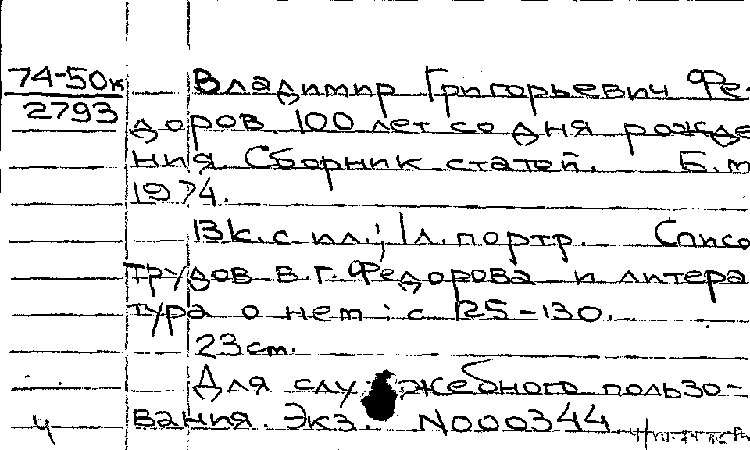 74-50к
2793
Владимир Григорьевич Фе-
доров. 100 лет со дня рожде
ния Сборник статей. Б.м
1974.
13к. с ил.; 1л. портр. Списо
трудов В.Г. Федорова и литера
тура о нем: с 125-130.
23 cm.
Для служебного пользо-
вания. Экз. N000344
ч